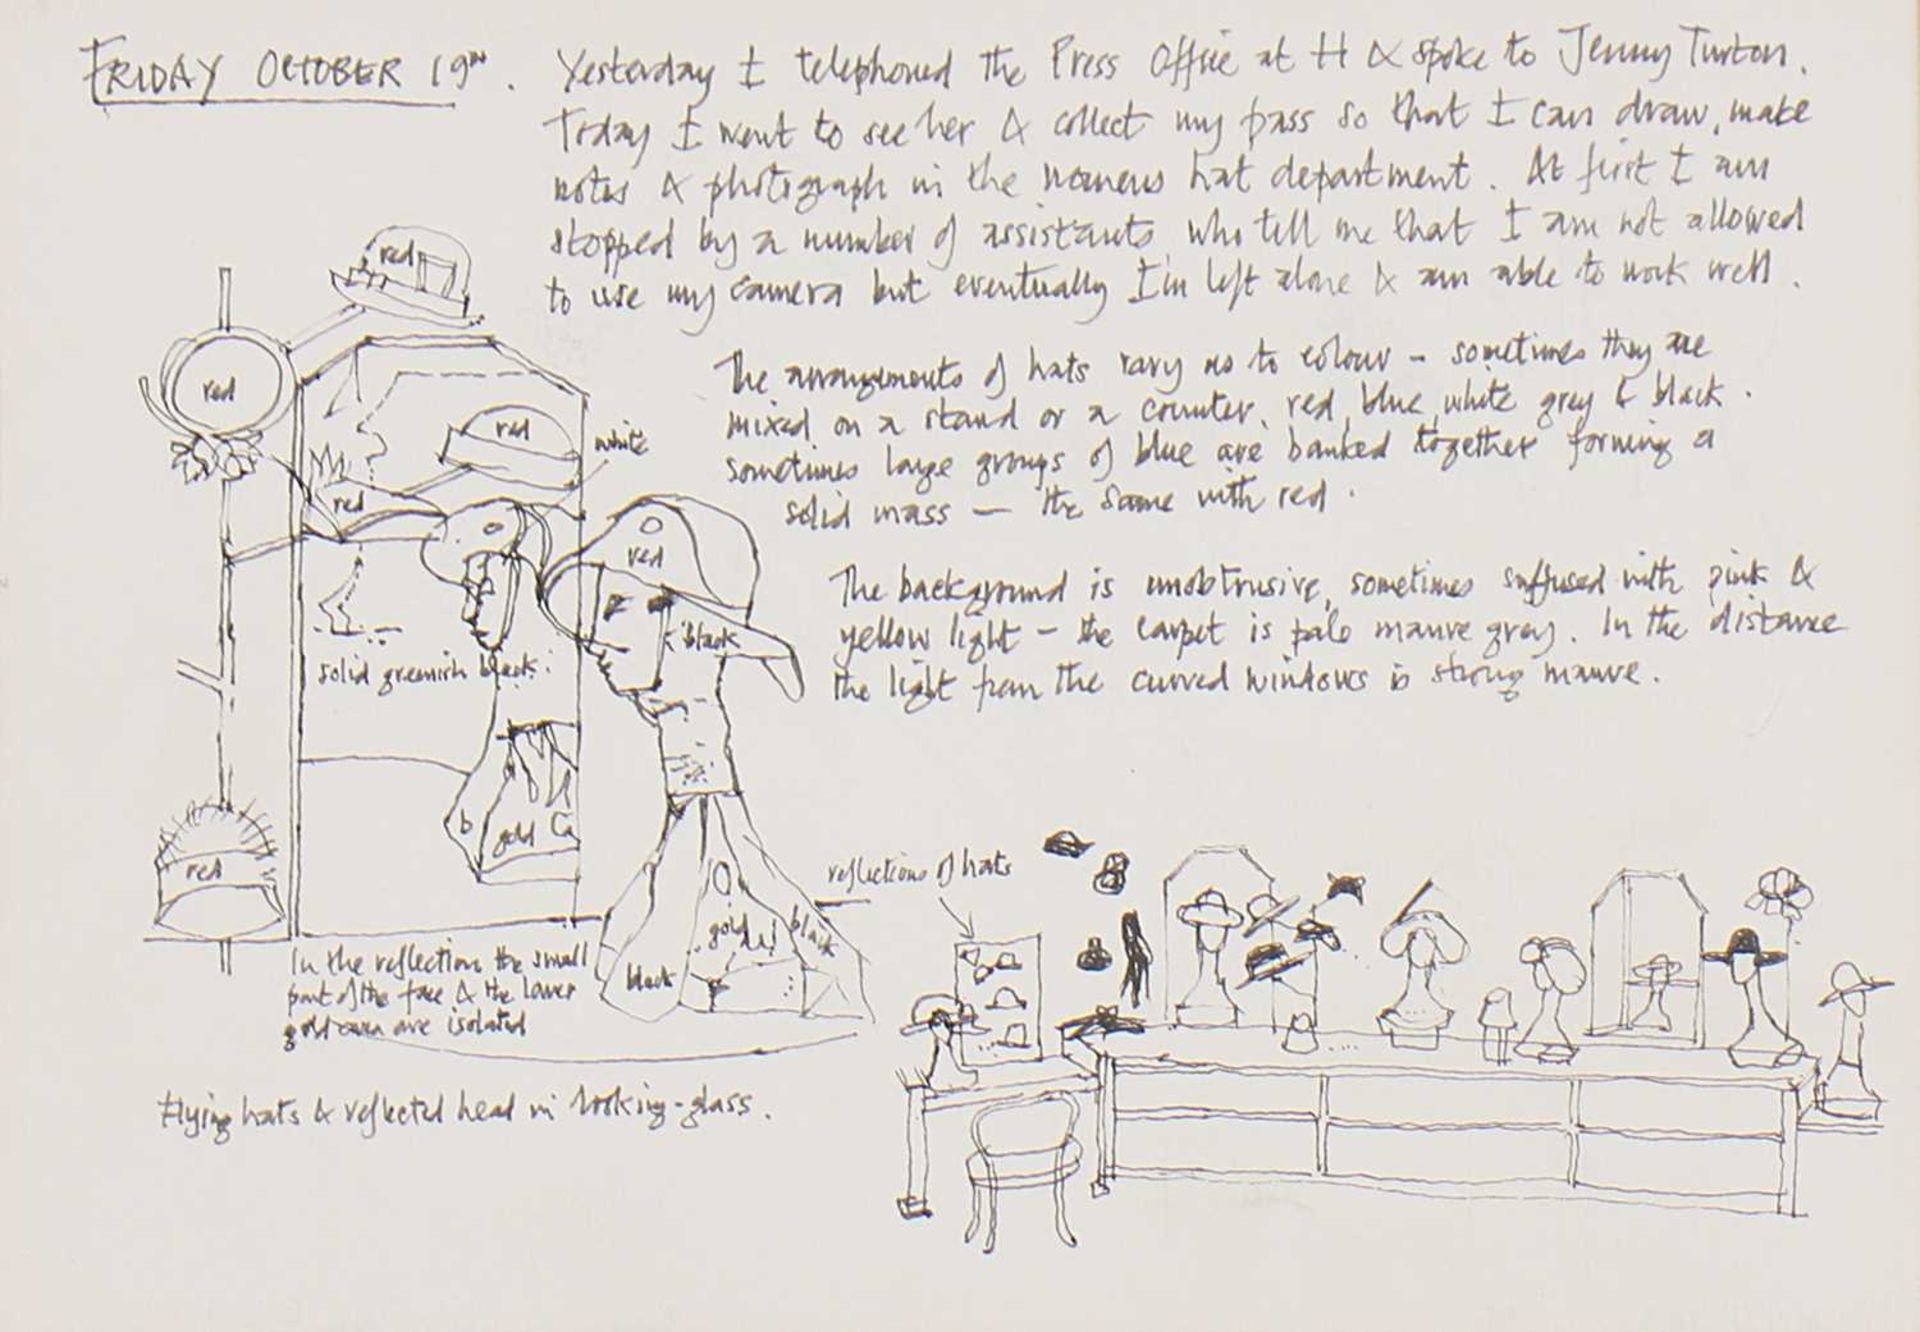 FRIDAY OCTOBER 19TH. Yesterday I telephoned the Press Office at H & spoke to Jenny Turton.
Today I went to see her & collect my pass so that I can draw, make
notes & photograph in the womens hat department. At first I am
stopped by a number of assistants who tell me that I am not allowed
to use my camera but eventually I'm left alone & am able to work well.
The arrangements of hats vary as to colour – sometimes they are
mixed on a stand or a counter, red, blue, white grey & black.
sometimes large groups of blue are banked together forming a
solid mass – the same with red.
The background is unobtrusive, sometimes suffused with pink &
yellow light – the carpet is pale mauve grey. In the distance
the light from the curved windows is strong mauve.
red
red
red
white
red
red
black
solid greenish black
b
gold
red
reflections of hats
gold
black
black
In the reflection the small
part of the face & the lower
gold are isolated
Flying hats & reflected head in looking-glass.